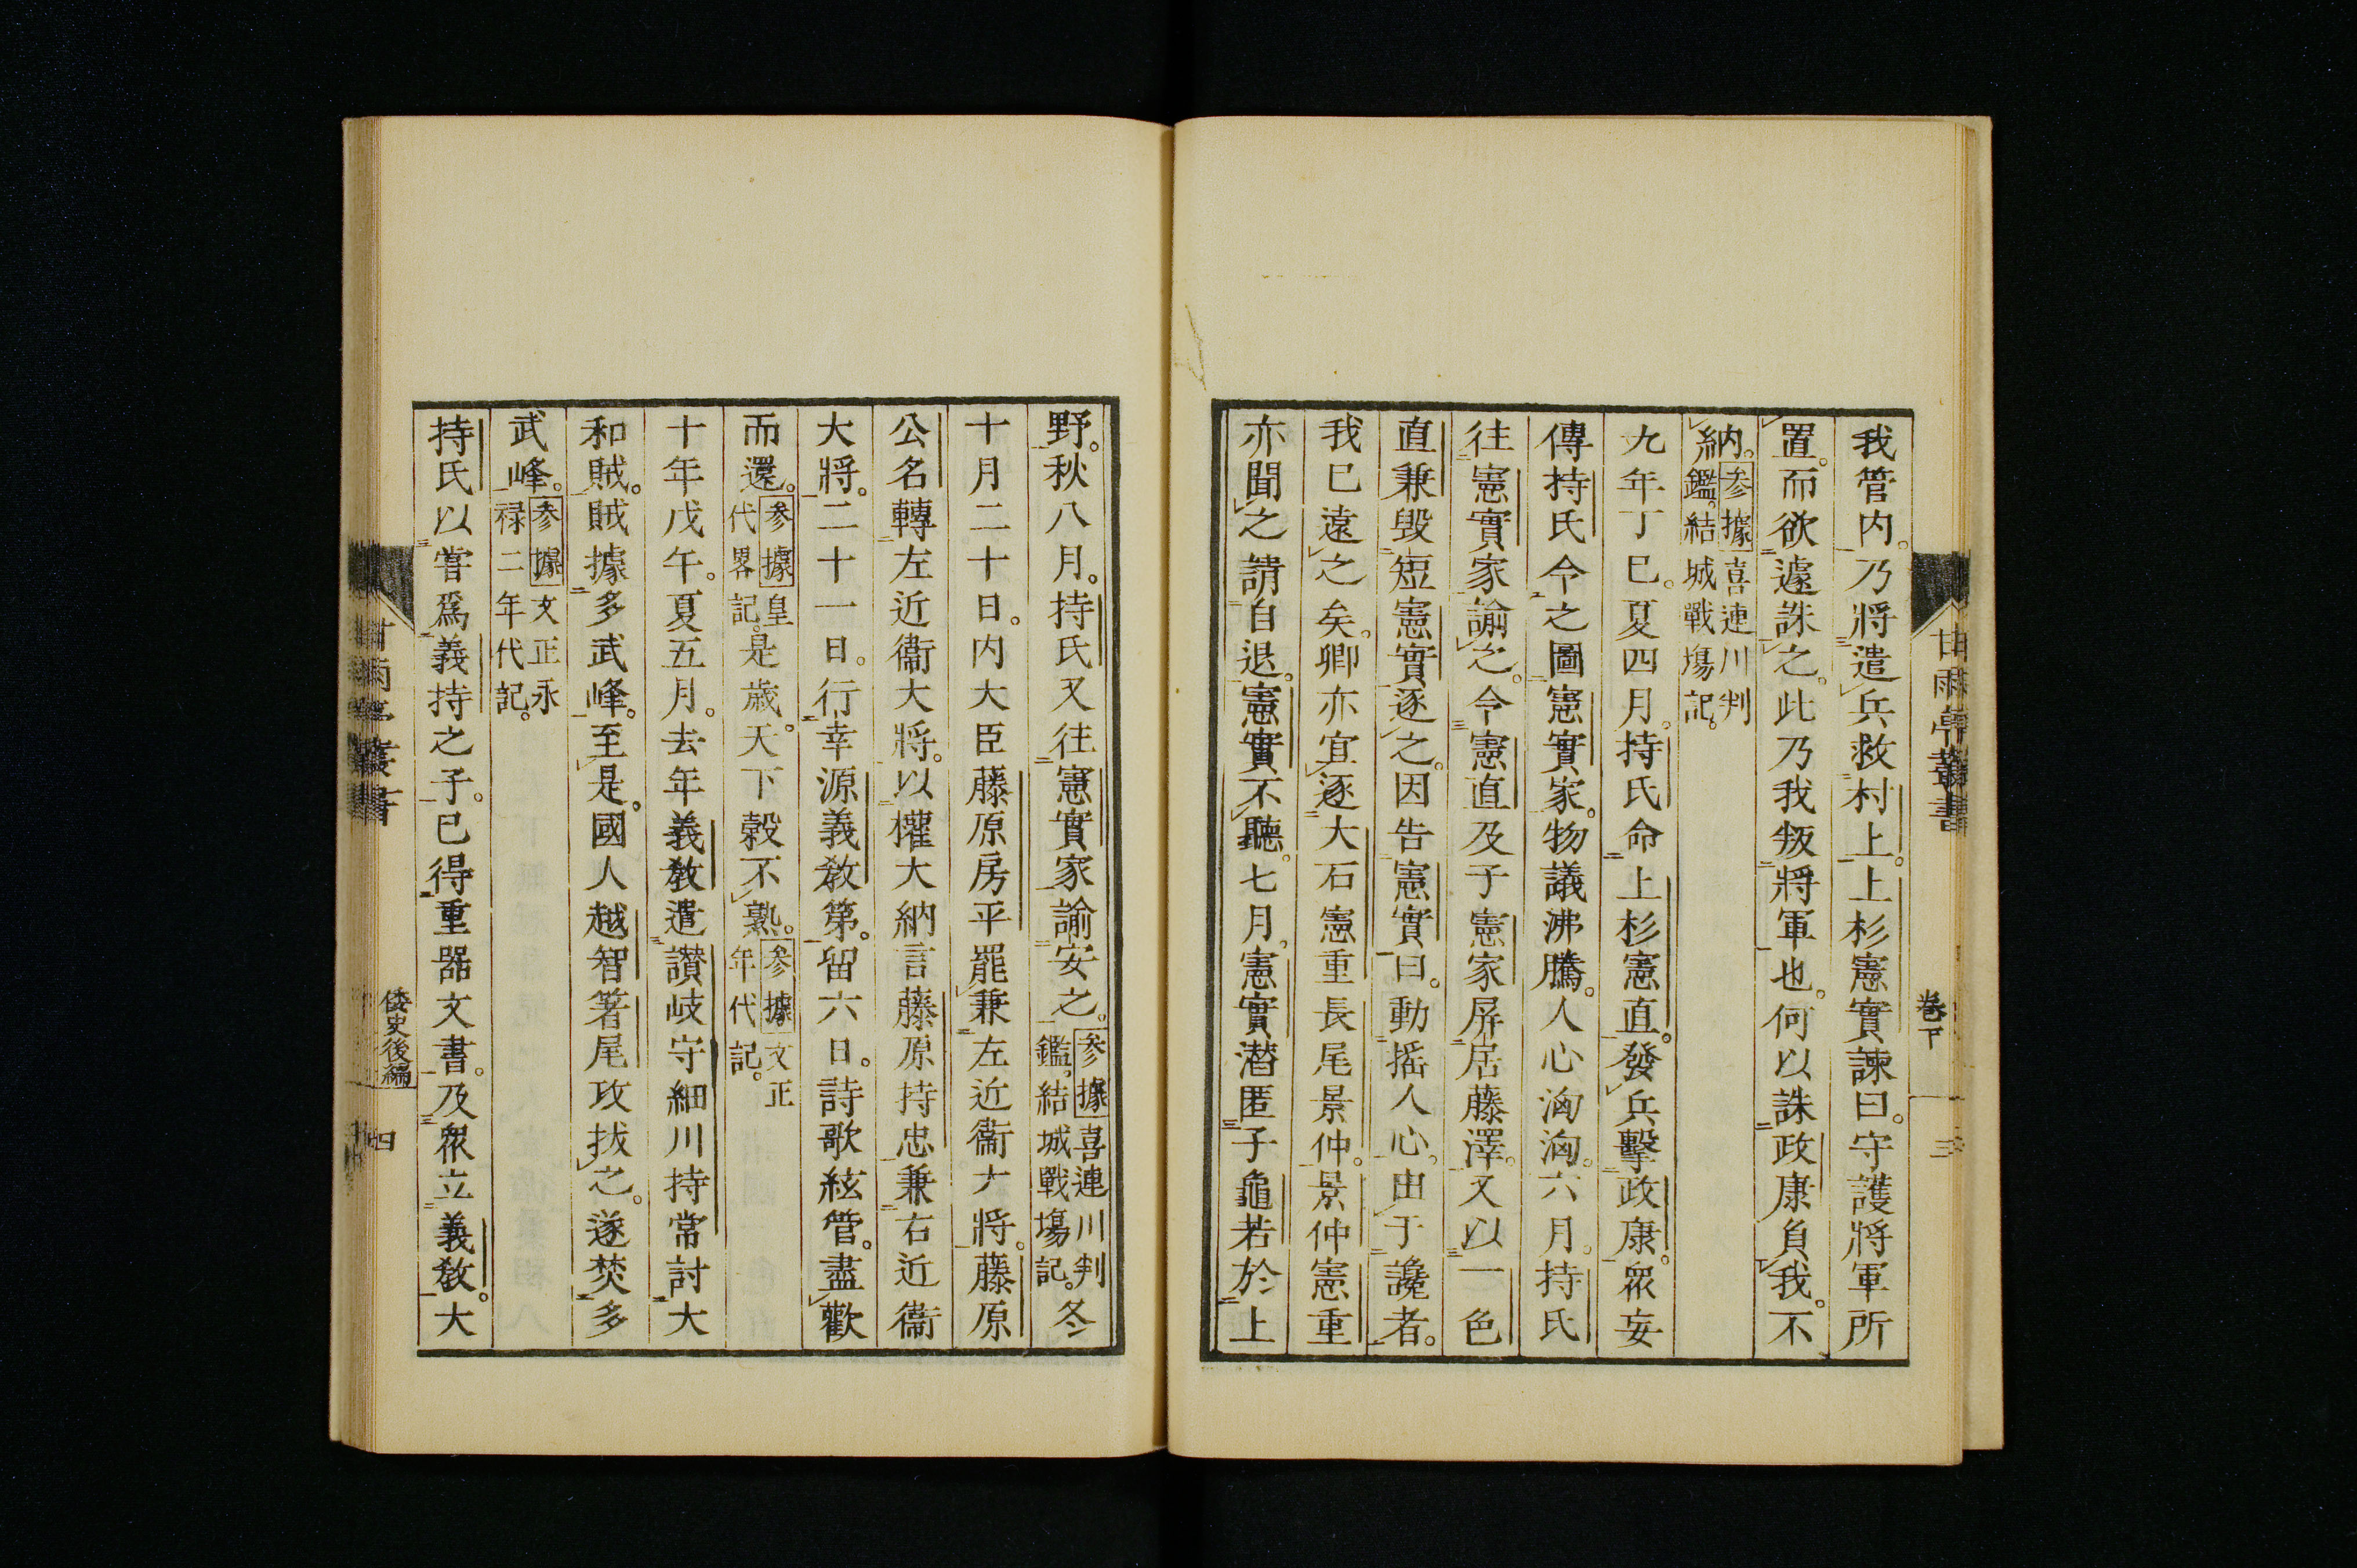 我管内。乃將遣兵救村上。上杉憲實諫曰。守護將軍所
置。而欲遽誅之。此乃我叛將軍也。何以誅政康負我。不
納。參據喜連川判鑑。結城戰塲記。
九年丁巳。夏四月。持氏命上杉憲直。發兵擊政康。衆妄
傳持氏令之圖憲實家。物議沸騰。人心洶洶。六月。持氏
往憲實家諭之。令憲直及子憲家屏居藤澤。又以一色
直兼毀短憲實逐之。因告憲實曰。動搖人心。由于讒者。
我已遠之矣。卿亦宜逐大石憲重長尾景仲。景仲憲重
亦聞之請自退。憲實不聽。七月。憲實潜匿子龜若於上
甘雨亭叢書
卷下
三
野。秋八月。持氏又往憲實家諭安之。參據喜連川判鑑。結城戰塲記。冬
十月二十日。内大臣藤原房平罷兼左近衞大將。藤原
公名轉左近衞大將。以權大納言藤原持忠兼右近衞
大將。二十一日。行幸源義敎第。留六日。詩歌絃管。盡歡
而還。參據皇代畧記。是歳。天下榖不熟。參據文正年代記。
十年戊午。夏五月。去年義敎遣讃岐守細川持常討大
和賊。賊據多武峰。至是。國人越智箸尾攻抜之。遂焚多
武峰。參據文正永禄二年代記。
持氏以嘗爲義持之子。已得重器文書。及衆立義敎。大
甘雨亭叢書
倭史後編
四